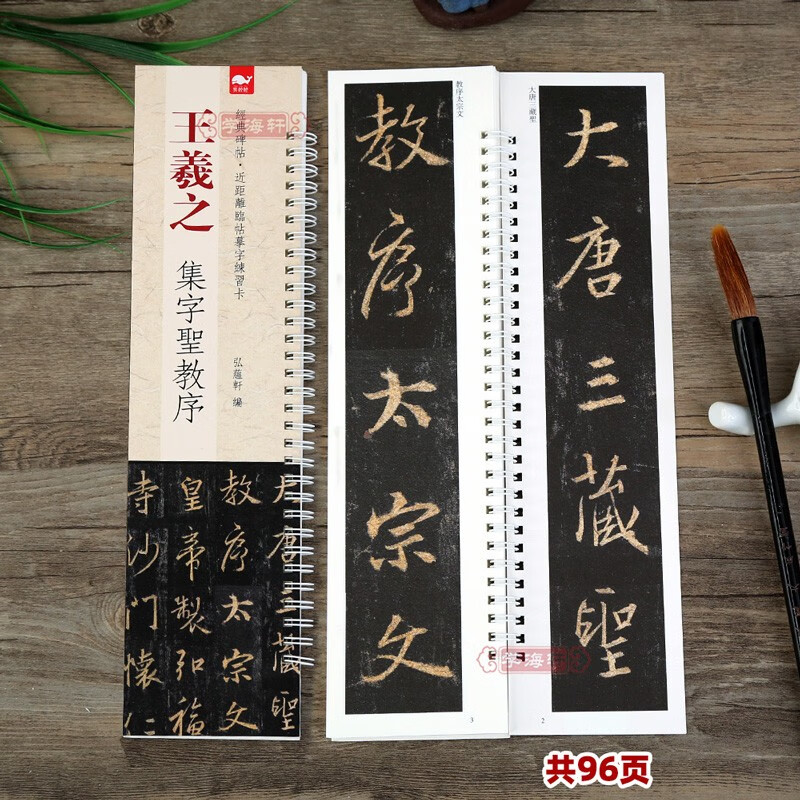 王羲之
經典碑帖·近距離臨帖摹字練習卡
集字聖教序
弘蘊軒 編
大唐三藏聖
教序太宗文
皇帝製弘福
寺沙門懷仁
大唐三藏聖
大唐三藏聖
2
教序太宗文
教序太宗文
3
学海轩
学海轩
共96页